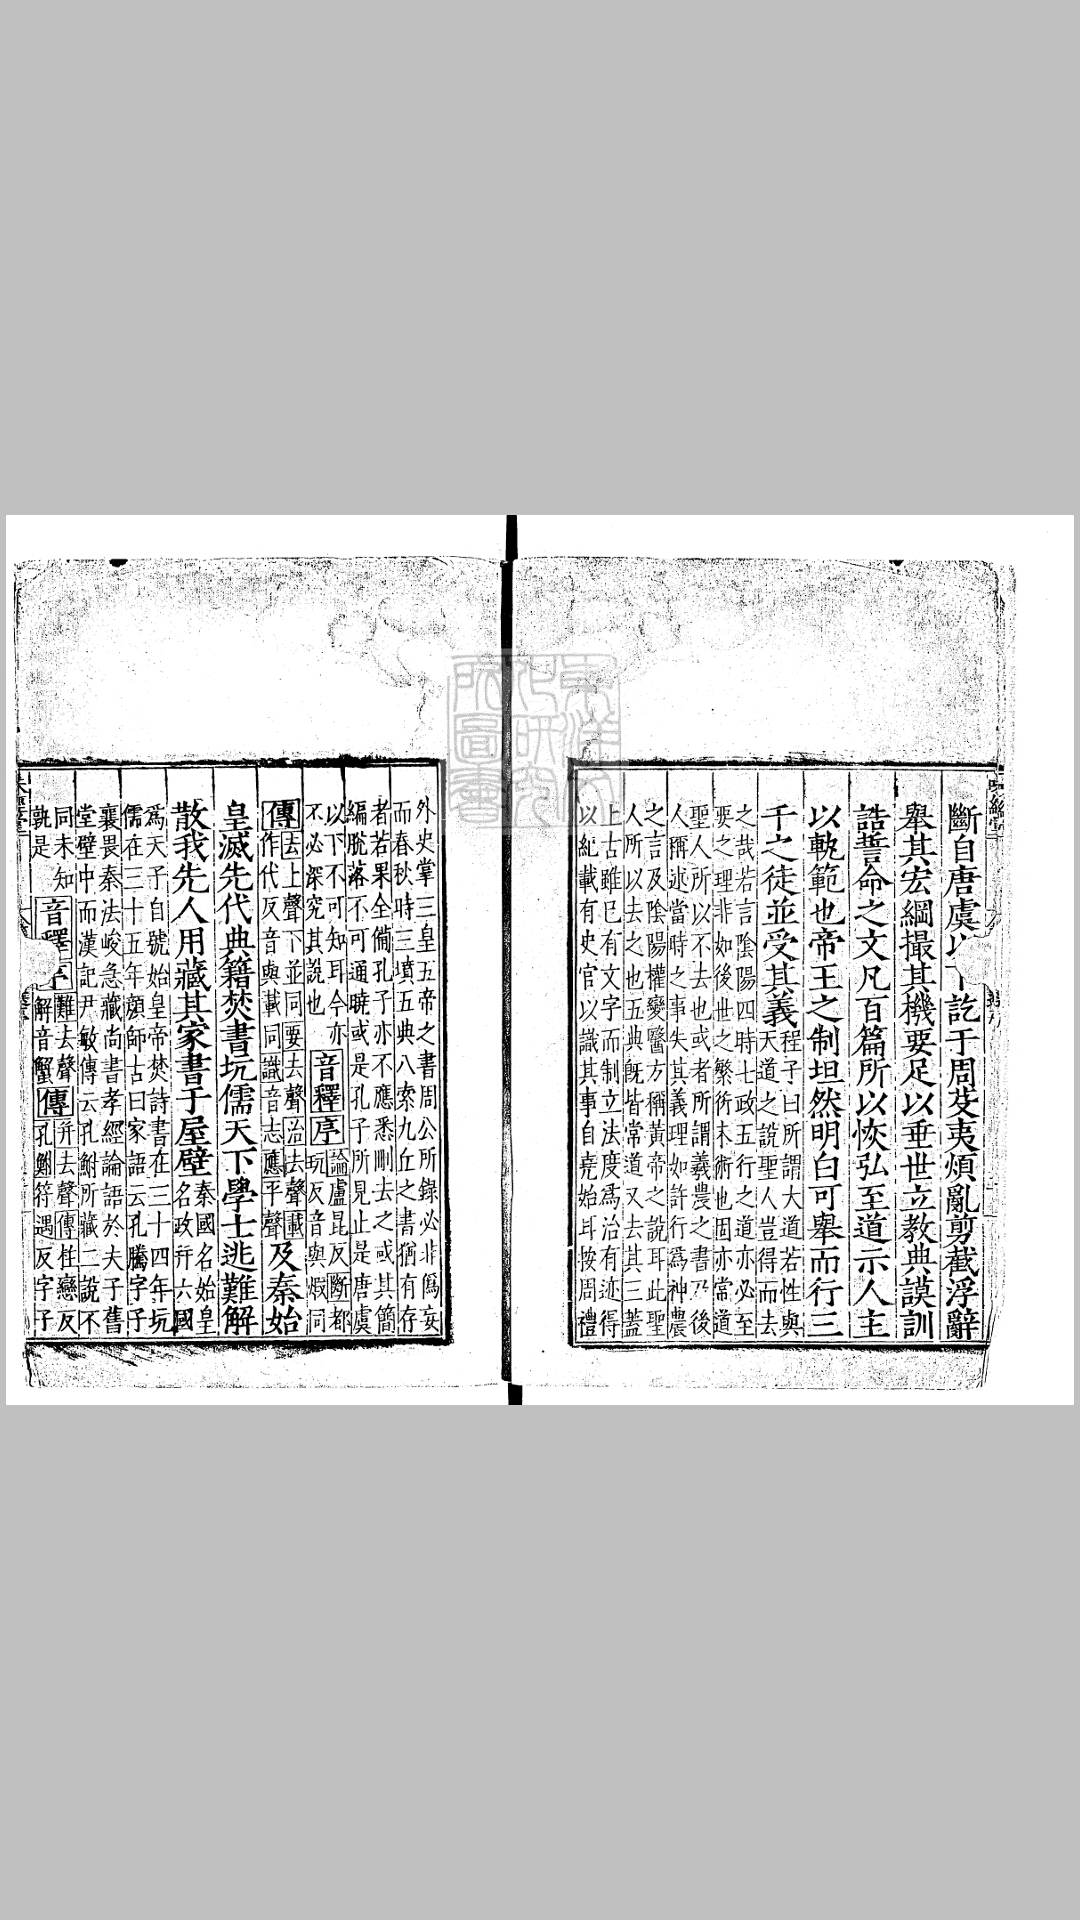 斷自唐虞以下訖于周芟夷煩亂剪截浮辭
舉其宏綱撮其機要足以垂世立教典謨訓
誥誓命之文凡百篇所以恢弘至道示人主
以軌範也帝王之制坦然明白可舉而行三
千之徒並受其義
程子曰所謂大道若性與
天道之說聖人豈得而去
之哉若言陰陽四時七政五行之道亦必至
要之理非如後世之繁衍末術也固亦常道
聖人所以不去也或者所謂羲農之書乃後
人稱述當時之事失其義理如許行爲神農
之言及陰陽權變醫方稱黃帝之說耳此聖
人所以去之也五典旣皆常道又去其三蓋
上古雖已有文字而制立法度爲治有迹得
以紀載有史官以識其事自堯始耳按周禮
外史掌三皇五帝之書周公所錄必非僞妄
而春秋時三墳五典八索九丘之書猶有存
者若果全備孔子亦不應悉刪去之或其簡
編脫落不可通曉或是孔子所見止是唐虞
以下不可知耳今亦
不必深究其說也
音釋
序
論盧昆反斷都
玩反音與煅同
傳
去上聲下並同要去聲治去聲載
作代反音與載同識音志應平聲
及秦始
皇滅先代典籍焚書坑儒天下學士逃難解
散我先人用藏其家書于屋壁
秦國名始皇
名政幷六國
爲天子自號始皇帝焚詩書在三十四年坑
儒在三十五年顔師古曰家語云孔騰字子
襄畏秦法峻急藏尚書孝經論語於夫子舊
堂壁中而漢記尹敏傳云孔鮒所藏二說不
同未知
孰是
音釋
序
難去聲
解音蟹
傳
幷去聲傳柱戀反
孔鮒符遇反字子